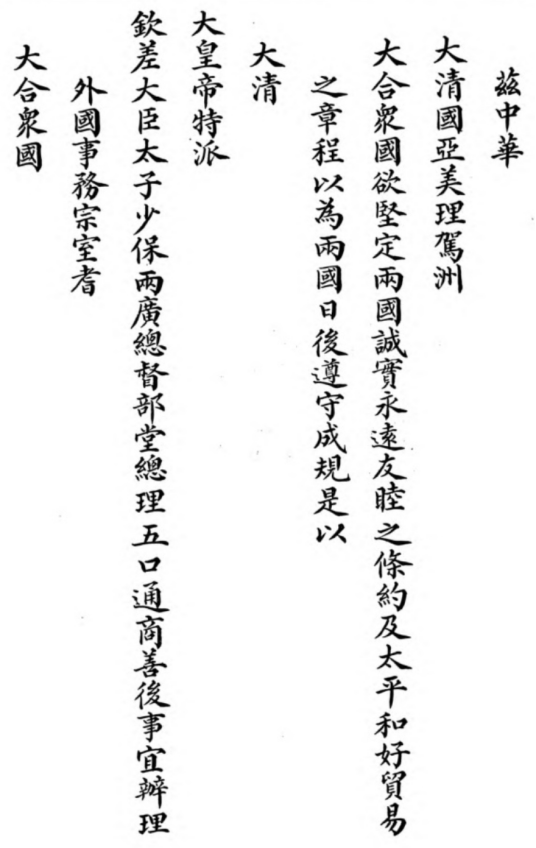 茲中華
大清國亞美理駕洲
大合衆國欲堅定兩國誠實永遠友睦之條約及太平和好貿易
之章程以為兩國日後遵守成規是以
大清
大皇帝特派
欽差大臣太子少保兩廣總督部堂總理五口通商善後事宜辦理
外國事務宗室耆
大合衆國